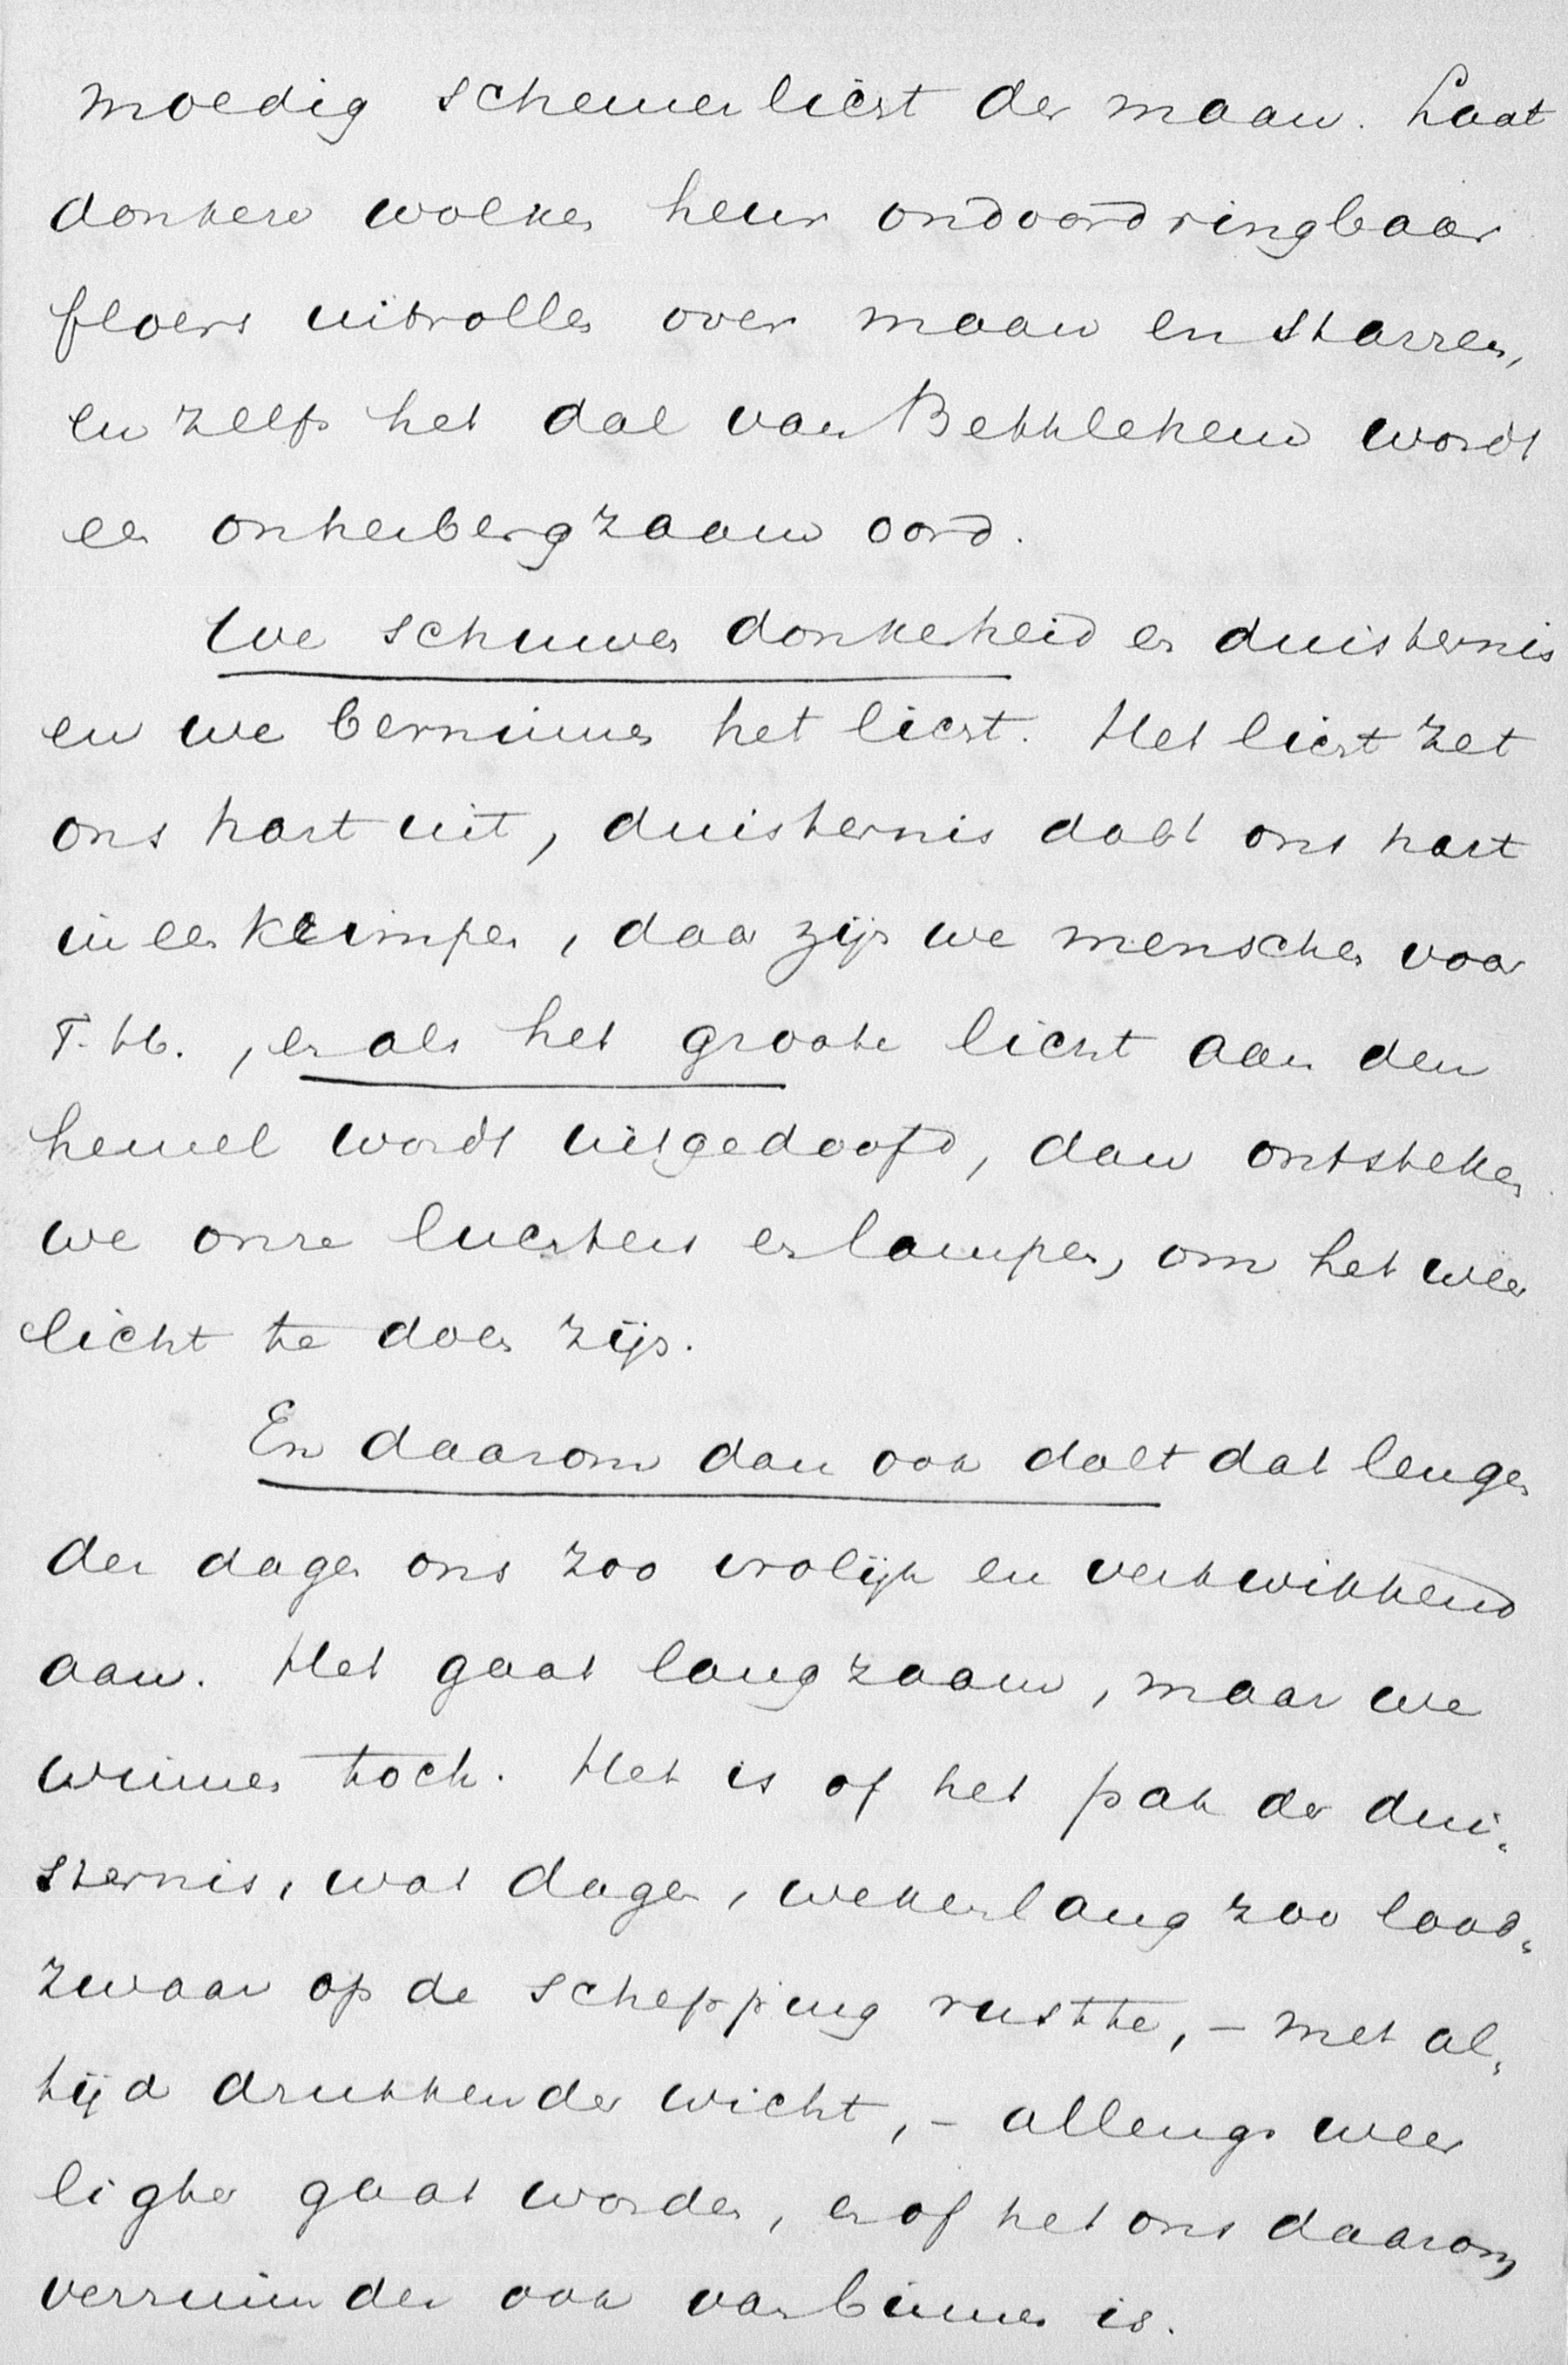 moedig schemerlicht der maan. Laat
donkere wolken heur ondoordringbaar
floers uitrollen over maan en starren,
en zelfs het dal van Bethlehem wordt
een onherbergzaam oord.
We schuwen donkerheid en duisternis
en we beminnen het licht. Het licht zet
ons hart uit, duisternis doet ons hart
ineenkrimpen, daar zijn we menschen voor
T. H., en als het groote licht aan den
hemel wordt uitgedoofd, dan ontsteken
we onze luchters en lampen, om het weer
licht te doen zijn.
En daarom dan ook doet dat lengen
der dagen ons zoo vrolijk en verkwikkend
aan. Het gaat langzaam, maar we
winnen toch. Het is of het pak der dui-
sternis, wat dagen, wekenlang zoo lood-
zwaar op de schepping rustte, - met al-
tijd drukkender wicht, - allengs weer
ligter gaat worden, en of het ons daarom
verruimder ook van binnen is.